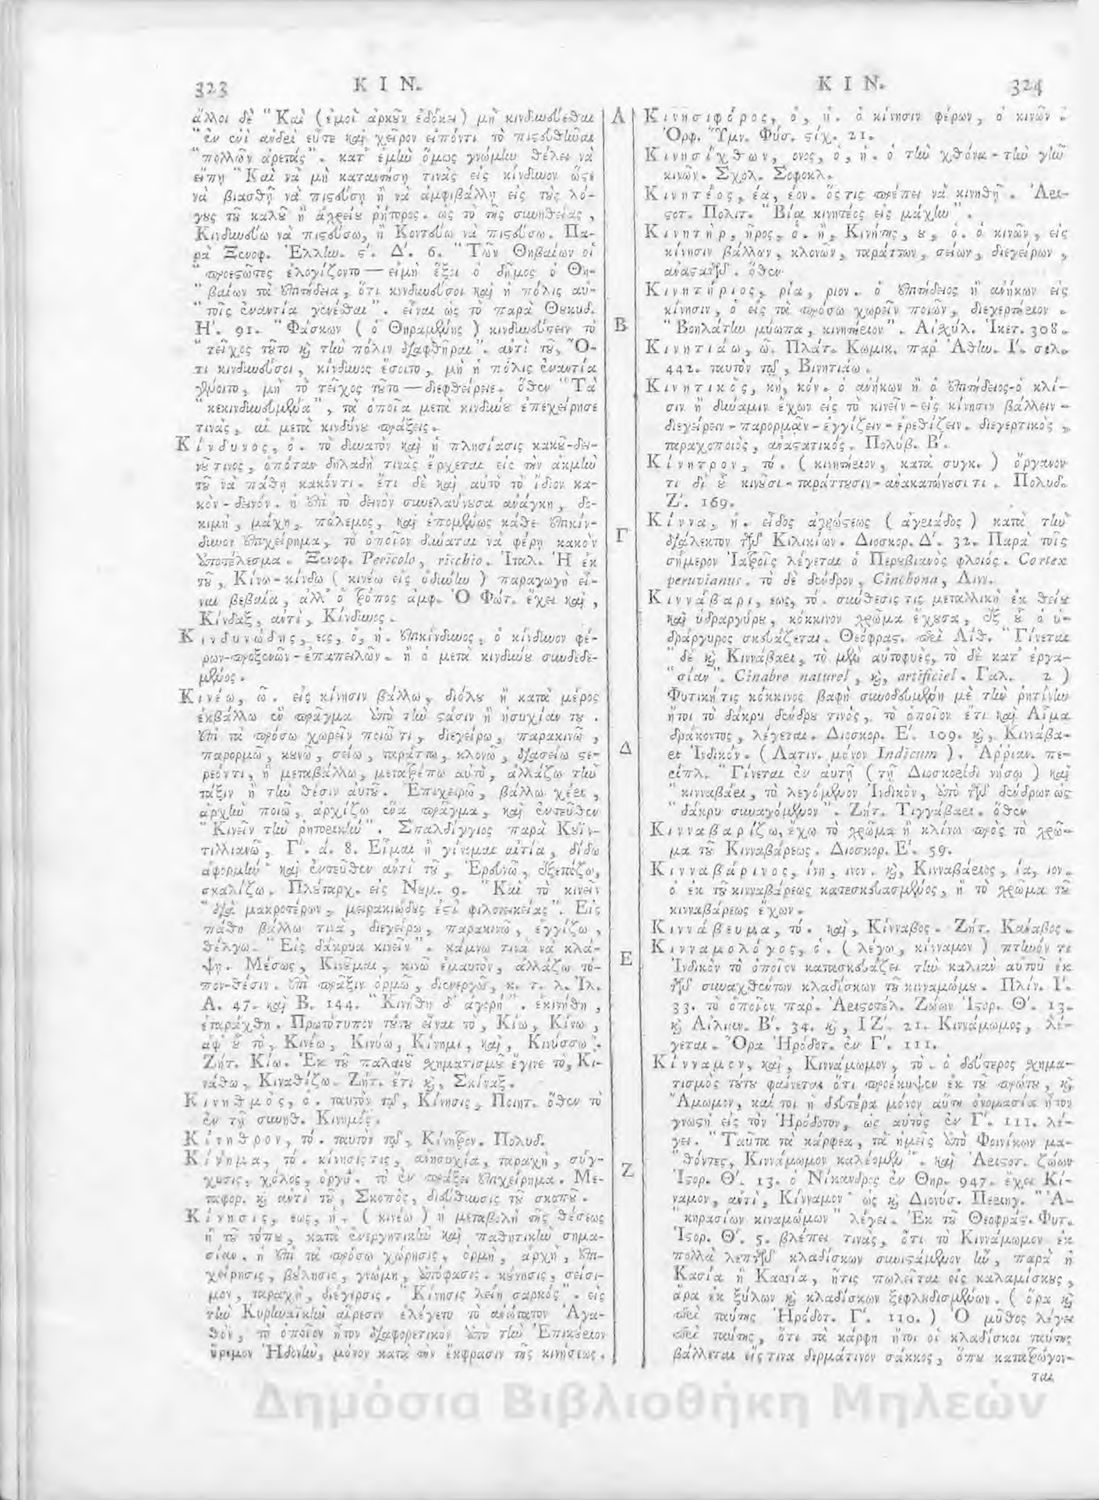 323 Κ Ι Ν.
ἄλλοι δὲ "Καὶ (ἐμοὶ ἀρκοῦν ἐδόκει) μὴ κινδυνεύεσθαι
"ἐν ἑνὶ ἀνδρὶ εὖτε καὶ χεῖρον εἰπόντι τὸ πιστευθῆναι
"πολλῶν ἀρετάς". κατ' ἐμὴν ὅμως γνώμην θέλει νὰ
εἴπῃ "Καὶ νὰ μὴ καταντήσῃ τινὰς εἰς κίνδυνον ὥστε
νὰ βιασθῇ νὰ πιστεύσῃ ἢ νὰ ἀμφιβάλλῃ εἰς τοὺς λό-
γους τοῦ καλοῦ ἢ ἀχρείου ῥήτορος. ὡς τὸ τῆς συνηθείας,
Κινδυνεύω νὰ πιστεύσω, ἢ Κοντεύω νὰ πιστεύσω. Πα-
ρὰ Ξενοφ. Ἑλλην. ς'. Δ'. 6. "Τῶν Θηβαίων οἱ
"προεστῶτες ἐλογίζοντο — εἰ μὴ ἕξει ὁ δῆμος ὁ Θη-
"βαίων τὰ ἐπιτήδεια, ὅτι κινδυνεύσοι καὶ ἡ πόλις αὐ-
"τοῖς ἐναντία γενέσθαι". εἶναι ὡς τὸ παρὰ Θουκυδ.
Η'. 91. "Φάσκων (ὁ Θηραμένης) κινδυνεύσειν τὸ
"τεῖχος τοῦτο καὶ τὴν πόλιν διαφθῆραι". ἀντὶ τοῦ, Ὅ-
τι κινδυνεύσοι, κίνδυνος ἔσοιτο, μὴ ἡ πόλις ἐναντία
γένοιτο, μὴ τὸ τεῖχος τοῦτο — διεφθείρειε. ὅθεν "Τὰ
"κεκινδυνευμένα", τὰ ὁποῖα μετὰ κινδύνου ἐπεχείρησε
τινάς, αἱ μετὰ κινδύνου πράξεις.
Κίνδυνος, ὁ. τὸ δυνατὸν καὶ ἡ πλησίασις κακοῦ-δει-
νοῦ τινος, ὁπόταν δηλαδὴ τινὰς ἔρχεται εἰς τὴν ἀκμὴν
τοῦ νὰ πάθῃ κακόν τι. ἔτι δὲ καὶ αὐτὸ τὸ ἴδιον κα-
κὸν-δεινόν. ἡ ἐπὶ τὸ δεινὸν συνελαύνουσα ἀνάγκη, δο-
κιμή, μάχη, πόλεμος, καὶ ἑπομένως κάθε ἐπικίν-
δυνον ἐπιχείρημα, τὸ ὁποῖον δύναται νὰ φέρῃ κακὸν
ἀποτέλεσμα. Ξενοφ. Pericolo, rischio. Ἰταλ. Ἡ ἐκ
τοῦ, Κίνω-κίνδω (κινέω εἰς ὀδύνην) παραγωγὴ εἶ-
ναι βεβαία, ἀλλ' ὁ τρόπος ἀμφ. Ὁ Φώτ. ἔχει καὶ,
Κίνδαξ, ἀντί, Κίνδυνος.
Κινδυνώδης, εος, ὁ, ἡ. ἐπικίνδυνος, ὁ κίνδυνον φέ-
ρων-προξενῶν-ἐπαπειλῶν. ἢ ὁ μετὰ κινδύνου συνδεδε-
μένος.
Κινέω, ῶ. εἰς κίνησιν βάλλω, διόλου ἢ κατὰ μέρος
ἐκβάλλω ἓν πρᾶγμα ἀπὸ τὴν στάσιν ἢ ἡσυχίαν του.
ἐπὶ τὰ πρόσω χωρεῖν ποιῶ τι, διεγείρω, παρακινῶ,
παρορμῶ, κενῶ, σείω, ταράττω, κλονῶ, διασείω στε-
ρεόν τι, ἢ μεταβάλλω, μετατρέπω αὐτό, ἀλλάζω τὴν
τάξιν ἢ τὴν θέσιν αὐτοῦ. Ἐπιχειρῶ, βάλλω χέρι,
ἀρχὴν ποιῶ, ἀρχίζω ἕνα πρᾶγμα, καὶ ἐντεῦθεν
"Κινεῖν τὴν ῥητορικήν". Σπαλδίγγιος παρὰ Κοϊν-
τιλλιανῷ, Γ'. ά. 8. Εἶμαι ἢ γίνομαι αἰτία, δίδω
ἀφορμήν· καὶ ἐντεῦθεν ἀντὶ τοῦ, Ἐρευνῶ, ἐξετάζω,
σκαλίζω. Πλούταρχ. εἰς Νουμ. 9. "Καὶ τὸ κινεῖν
"διὰ μακροτέρων, μειρακιώδους ἐστὶ φιλονεικίας". Εἰς
πάθη βάλλω τινά, διεγείρω, παρακινῶ, ἐγγίζω,
θέλγω. "Εἰς δάκρυα κινεῖν". κάμνω τινὰ νὰ κλά-
ψῃ. Μέσως, Κινοῦμαι, κινῶ ἐμαυτόν, ἀλλάζω τό-
πον-θέσιν. ἐπὶ πρᾶξιν ὁρμῶ, διενεργῶ, κ. τ. λ. Ἰλ.
Α. 47. καὶ Β. 144. "Κινήθη δ' ἀγορή". ἐκινήθη,
ἐταράχθη. Πρωτότυπον τούτου εἶναι τὸ, Κίω, Κίνω,
ἀφ' οὗ τὸ, Κινέω, Κινύω, Κίνημι, καὶ, Κινύσσω.
Ζήτ. Κίω. Ἐκ τοῦ παλαιοῦ σχηματισμοῦ ἔγινε τὸ, Κι-
νάθω, Κιναθίζω. Ζήτ. ἔτι καὶ, Σκίναξ.
Κινηθμός, ὁ. ταυτὸν τῷ, Κίνησις, Ποιητ. ὅθεν τὸ
ἐν τῇ συνηθ. Κινημός.
Κίνηθρον, τό. ταυτὸν τῷ, Κίνητρον. Πολυδ.
Κίνημα, τό. κίνησίς τις, ἀνησυχία, ταραχή, σύγ-
χυσις, χόλος, ὀργή. τὸ ἐν πράξει ἐπιχείρημα. Με-
ταφορ. καὶ ἀντὶ τοῦ, Σκοπός, διεύθυνσις τοῦ σκοποῦ.
Κίνησις, εως, ἡ. (κινέω) ἡ μεταβολὴ τῆς θέσεως
ἢ τοῦ τόπου, κατὰ ἐνεργητικὴν καὶ παθητικὴν σημα-
σίαν. ἡ ἐπὶ τὰ πρόσω χώρησις, ὁρμή, ἀρχή, ἐπι-
χείρησις, βούλησις, γνώμη, ἀπόφασις. κούνησις, σείσι-
μον, ταραχή, διέγερσις. "Κίνησις λείη σαρκός". εἰς
τὴν Κυρηναϊκὴν αἵρεσιν ἐλέγετο τὸ ἀνώτατον Ἀγα-
θόν, τὸ ὁποῖον ἦτον διαφορετικὸν ἀπὸ τὴν Ἐπικούρειον
ὕριμον Ἡδονήν, μόνον κατὰ τὴν ἔκφρασιν τῆς κινήσεως.
Α
Β
Γ
Δ
Ε
Ζ
Κ Ι Ν. 324
Κινησιφόρος, ὁ, ἡ. ὁ κίνησιν φέρων, ὁ κινῶν.
Ὀρφ. Ὕμν. Φύσ. στίχ. 21.
Κινησίχθων, ονος, ὁ, ἡ. ὁ τὴν χθόνα-τὴν γῆν
κινῶν. Σχολ. Σοφοκλ.
Κινητέος, έα, έον. ὅστις πρέπει νὰ κινηθῇ. Ἀρι-
στοτ. Πολιτ. "Βίᾳ κινητέος εἰς μάχην".
Κινητήρ, ῆρος, ὁ. ἢ, Κινητής, οῦ, ὁ. ὁ κινῶν, εἰς
κίνησιν βάλλων, κλονῶν, ταράττων, σείων, διεγείρων,
ἀναστατῶν. ὅθεν
Κινητήριος, ρία, ριον. ὁ ἐπιτήδειος ἢ ἀνήκων εἰς
κίνησιν, ὁ εἰς τὰ πρόσω χωρεῖν ποιῶν, διεγερτήριον.
"Βοηλάτην μύωπα, κινητήριον". Αἰσχύλ. Ἱκετ. 308.
Κινητιάω, ῶ. Πλάτ. Κωμικ. παρ' Ἀθήν. Ι'. σελ.
442. ταυτὸν τῷ, Βινητιάω.
Κινητικός, κή, κόν. ὁ ἀνήκων ἢ ὁ ἐπιτήδειος-ὁ κλί-
σιν ἢ δύναμιν ἔχων εἰς τὸ κινεῖν-εἰς κίνησιν βάλλειν-
διεγείρειν-παρορμᾶν-ἐγγίζειν-ἐρεθίζειν. διεγερτικός,
ταραχοποιός, ἀναστατικός. Πολύβ. Β'.
Κίνητρον, τό. (κινητήριον, κατὰ συγκ.) ὄργανόν
τι δι' οὗ κινοῦσι-ταράττουσιν-ἀνακατώνουσί τι. Πολυδ.
Ζ'. 169.
Κίννα, ἡ. εἶδος ἀγρώστεως (ἀγριάδος) κατὰ τὴν
διάλεκτον τῶν Κιλικίων. Διοσκορ. Δ'. 32. Παρὰ τοῖς
σήμερον Ἰατροῖς λέγεται ὁ Περουβιανὸς φλοιός. Cortex
peruvianus. τὸ δὲ δένδρον, Cinchona, Λινν.
Κιννάβαρι, εως, τό. σύνθεσίς τις μεταλλικὴ ἐκ θείου
καὶ ὑδραργύρου, κόκκινον χρῶμα ἔχουσα, ἐξ οὗ ὁ ὑ-
δράργυρος σκευάζεται. Θεόφρας. περὶ Λίθ. "Γίνεται
"δὲ καὶ Κιννάβαρι, τὸ μὲν αὐτοφυές, τὸ δὲ κατ' ἐργα-
"σίαν". Cinabre naturel, καὶ, artificiel. Γαλ. 2)
Φυτική τις κόκκινος βαφὴ συνοδευμένη μὲ τὴν ῥητίνην
ἤτοι τὸ δάκρυ δένδρου τινός, τὸ ὁποῖον ἔτι καὶ Αἷμα
δράκοντος, λέγεται. Διοσκορ. Ε'. 109. καὶ, Κιννάβα-
ρι Ἰνδικόν. (Λατιν. μόνον Indicum). Ἀρριαν. πε-
ρίπλ. "Γίνεται ἐν αὐτῇ (τῇ Διοσκορίδι νήσῳ) καὶ
"κιννάβαρι, τὸ λεγόμενον Ἰνδικόν, ἀπὸ τῶν δένδρων ὡς
"δάκρυ συναγόμενον". Ζήτ. Τιγγάβαρι. ὅθεν
Κινναβαρίζω, ἔχω τὸ χρῶμα ἢ κλίνω πρὸς τὸ χρῶ-
μα τοῦ Κινναβάρεως. Διοσκορ. Ε'. 59.
Κινναβάρινος, ίνη, ινον. καὶ, Κινναβάριος, ία, ιον.
ὁ ἐκ τοῦ κινναβάρεως κατεσκευασμένος, ἢ τὸ χρῶμα τοῦ
κινναβάρεως ἔχων.
Κιννάβευμα, τό. καὶ, Κίνναβος. Ζήτ. Κάναβος.
Κινναμολόγος, ὁ. (λέγω, κίνναμον) πτηνόν τι
Ἰνδικὸν τὸ ὁποῖον κατασκευάζει τὴν καλιὰν αὐτοῦ ἐκ
τῶν συναχθέντων κλαδίσκων τοῦ κινναμώμου. Πλίν. Ι'.
33. τὸ ὁποῖον παρ. Ἀριστοτέλ. Ζώων Ἱστορ. Θ'. 13.
καὶ Αἰλιαν. Β'. 34. καὶ, ΙΖ'. 21. Κιννάμωμος, λέ-
γεται. Ὅρα Ἡρόδοτ. ἐν Γ'. 111.
Κίνναμον, καὶ, Κινάμωμον, τό. ὁ δεύτερος σχημα-
τισμὸς τούτου φαίνεται ὅτι προέκυψεν ἐκ τοῦ πρώτου, καὶ
Ἄμωμον, καί τοι ἡ δευτέρα μόνον αὕτη ὀνομασία ἦτον
γνωστὴ εἰς τὸν Ἡρόδοτον, ὡς αὐτὸς ἐν Γ'. 111. λέ-
γει. "Ταῦτα τὰ κάρφεα, τὰ ἡμεῖς ἀπὸ Φοινίκων μα-
"θόντες, Κιννάμωμον καλέομεν". καὶ Ἀριστοτ. ζώων
Ἱστορ. Θ'. 13. ὁ Νίκανδρος ἐν Θηρ. 947. ἔχει Κί-
ναμον, ἀντί, Κίνναμον· ὡς καὶ Διονύσ. Περιηγ. "Ἀ-
"κηρασίων κιναμώμων" λέγει. Ἐκ τοῦ Θεοφράς. Φυτ.
Ἱστορ. Θ'. 5. βλέπει τινάς, ὅτι τὸ Κιννάμωμον ἐκ
πολλὰ λεπτῶν κλαδίσκων συνιστάμενον ἦν, παρὰ ἡ
Κασία ἢ Κασσία, ἥτις πωλεῖται εἰς καλαμίσκους,
ἄρα ἐκ ξύλων καὶ κλαδίσκων ξεφλουδισμένων. (ὅρα καὶ
περὶ ταύτης Ἡρόδοτ. Γ'. 110.) Ὁ μῦθος λέγει
περὶ ταύτης, ὅτι τὰ κάρφη ἤτοι οἱ κλαδίσκοι ταύτης
βάλλεται εἴς τινα δερμάτινον σάκκος, ὅπου κατατρώγον-
ται
Δημόσια Βιβλιοθήκη Μηλεών